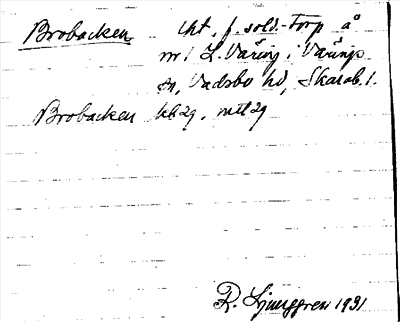 Brobacken lht, f. sold.-torp å
nr 1 L. Väring i Värings
sn, Vadsbo hd, Skarab. l.
Brobacken hk 29, mtl 29
R. Ljunggren 1931